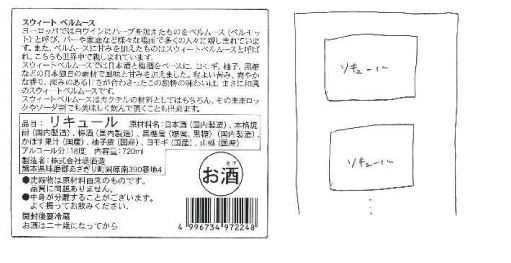 スウィート ベルムース
ヨーロッパでは白ワインにハーブを加えたものをベルムース（ベルモッ
ト）と呼び、バーや家庭など様々な場面で多くの人々に親しまれていま
す。また、ベルムースに甘みを加えたものはスウィートベルムースと呼ば
れ、こちらも世界中で親しまれています。
スウィートベルムースでは日本酒と梅酒をベースに、ヨモギ、柚子、黒糖
などの日本独自の素材で風味と甘みを加えました。程よい苦み、爽やか
な香り、深みのある甘さが合わさったこの独特の味わいは、まさに和風
のスウィートベルムースです。
スウィートベルムースはカクテルの材料としてはもちろん、そのままロッ
クやソーダ割でも美味しく飲んで頂くことも出来ます。
品目：リキュール 原材料名：日本酒（国内製造）、本格焼
酎（国内製造）、梅酒（国内製造）、黒糖蜜（糖蜜、黒糖）（国内製造）、
かぼす果汁（国産）、柚子皮（国産）、ヨモギ（国産）、山椒（国産）
アルコール分：18度 内容量：720ml
製造者：株式会社堤酒造
熊本県球磨郡あさぎり町岡原南390番地4
●沈殿物は原材料由来のものです。
品質に問題ありません。
●中身が分離することがございます。
よく振ってお飲みください。
開封後要冷蔵
お酒は二十歳になってから
さけ
お酒
4 996734 972248
リキュール
リキュール